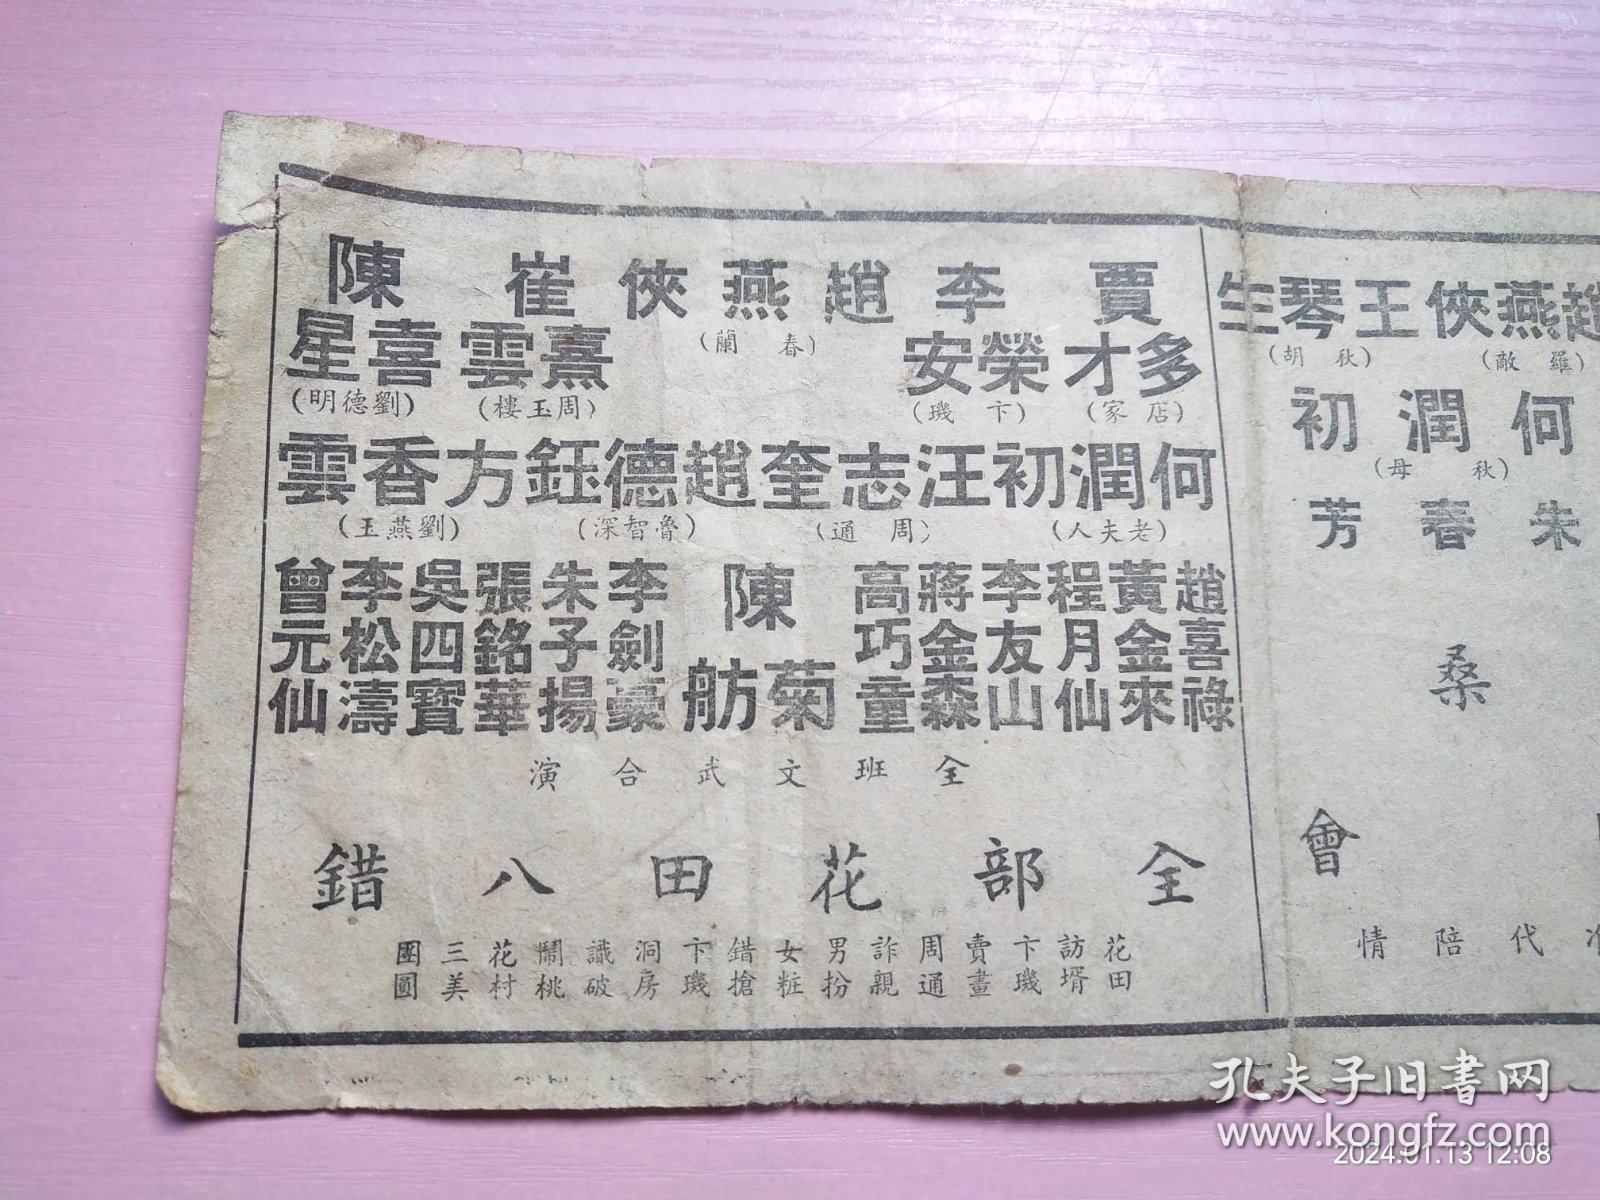 趙燕俠
(羅敷)
王琴生
(秋胡)
何潤初
(秋母)
朱春芳
桑
會
代陪情
賈多才
(店家)
李榮安
(卞璣)
趙燕俠
(春蘭)
崔熹雲
(周玉樓)
陳喜星
(劉德明)
何潤初
(老夫人)
汪志奎
(周通)
趙德鈺
(魯智深)
方香雲
(劉燕玉)
趙喜祿
黃金來
程月仙
李友山
蔣金森
高巧童
陳菊舫
李劍豪
朱子揚
張銘華
吳四寶
李松濤
曾元仙
全班文武合演
全部花田八錯
花田訪壻
卞璣賣畫
周通詐親
男扮女粧
錯搶卞璣
洞房識破
鬧桃花村
三美團圓
孔夫子旧書网
www.kongfz.com
2024.01.13 12:08